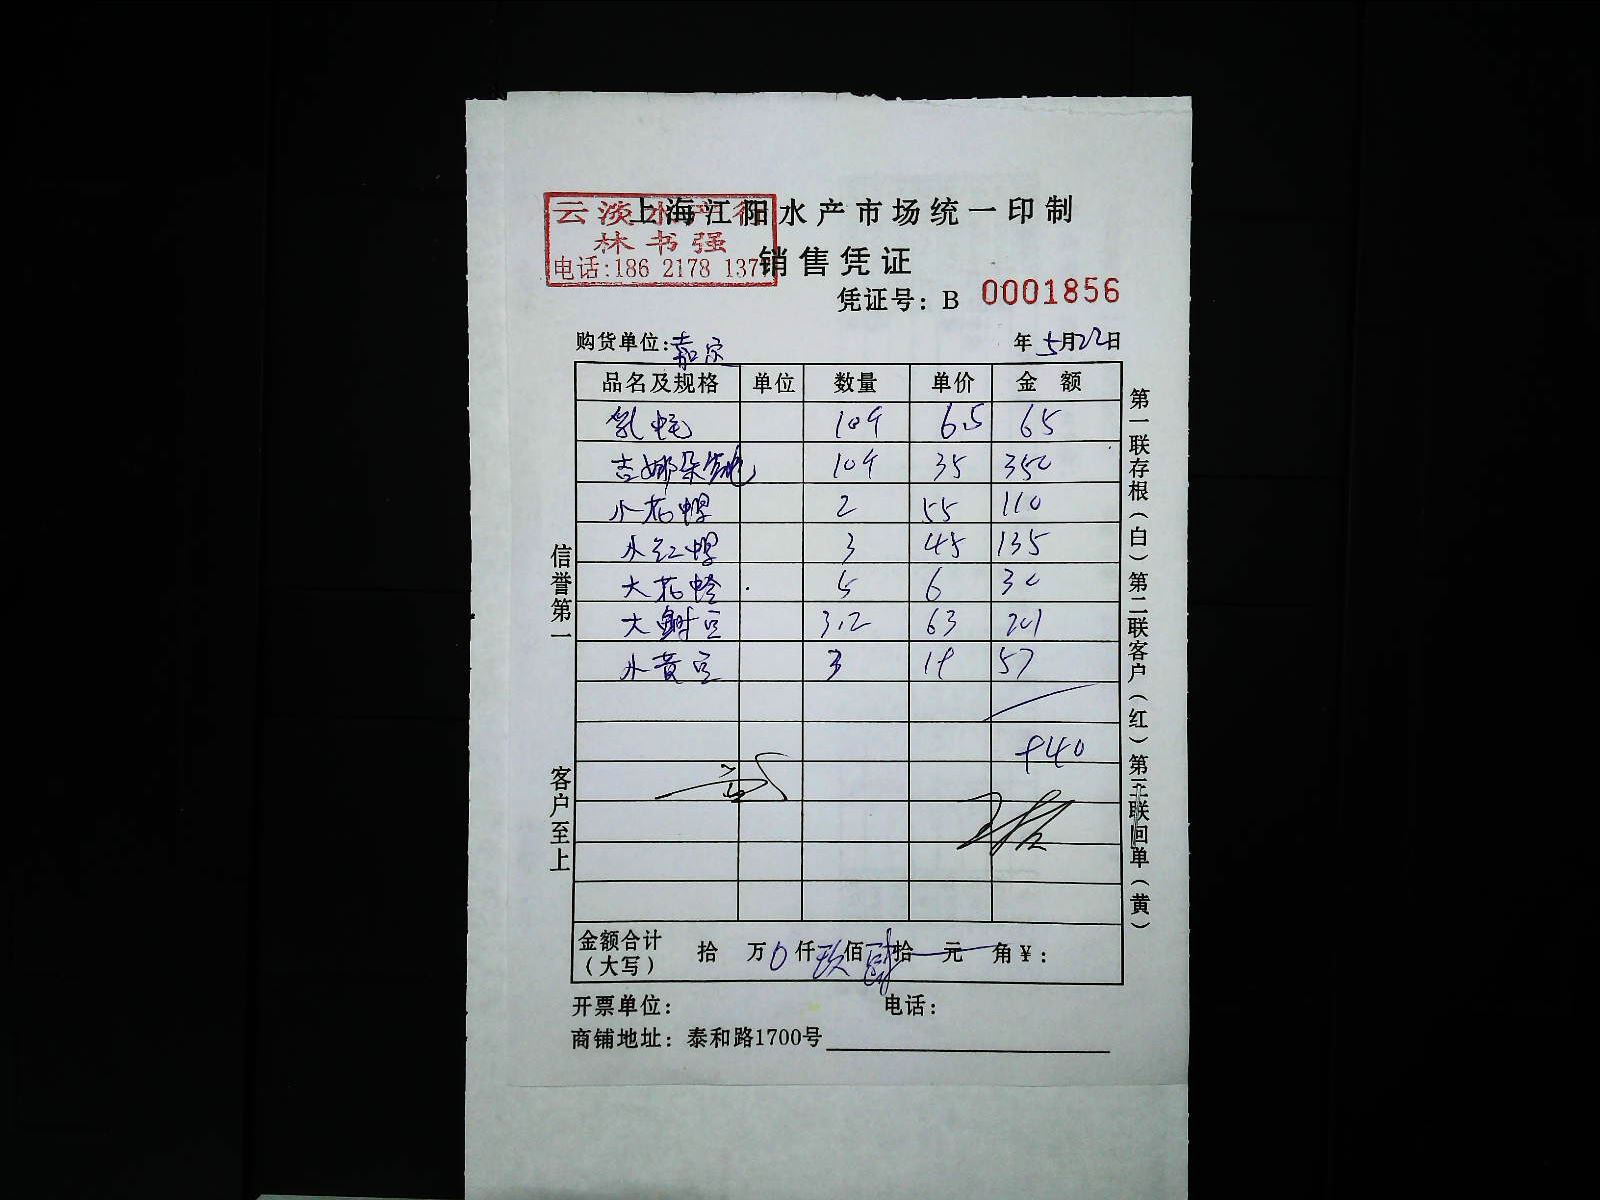 上海江阳水产市场统一印制
云淡水产行
林书强
销售凭证
电话:186 2178 137
凭证号: B 0001856
购货单位: 嘉定 年 5月22日
品名及规格 单位 数量 单价 金额
乳 6.5 65
吉娜朵 35 350
小花 2 55 110
小红 3 45 135
大花 5 6 30
大 豆 3.2 63 201
小黄豆 3 19 57
940
金额合计(大写) 拾 万 0 仟 玖 佰 肆 拾 元 角 ¥:
开票单位: 电话:
商铺地址: 泰和路1700号
信誉第一 客户至上
第一联存根(白) 第二联客户(红) 第三联回单(黄)